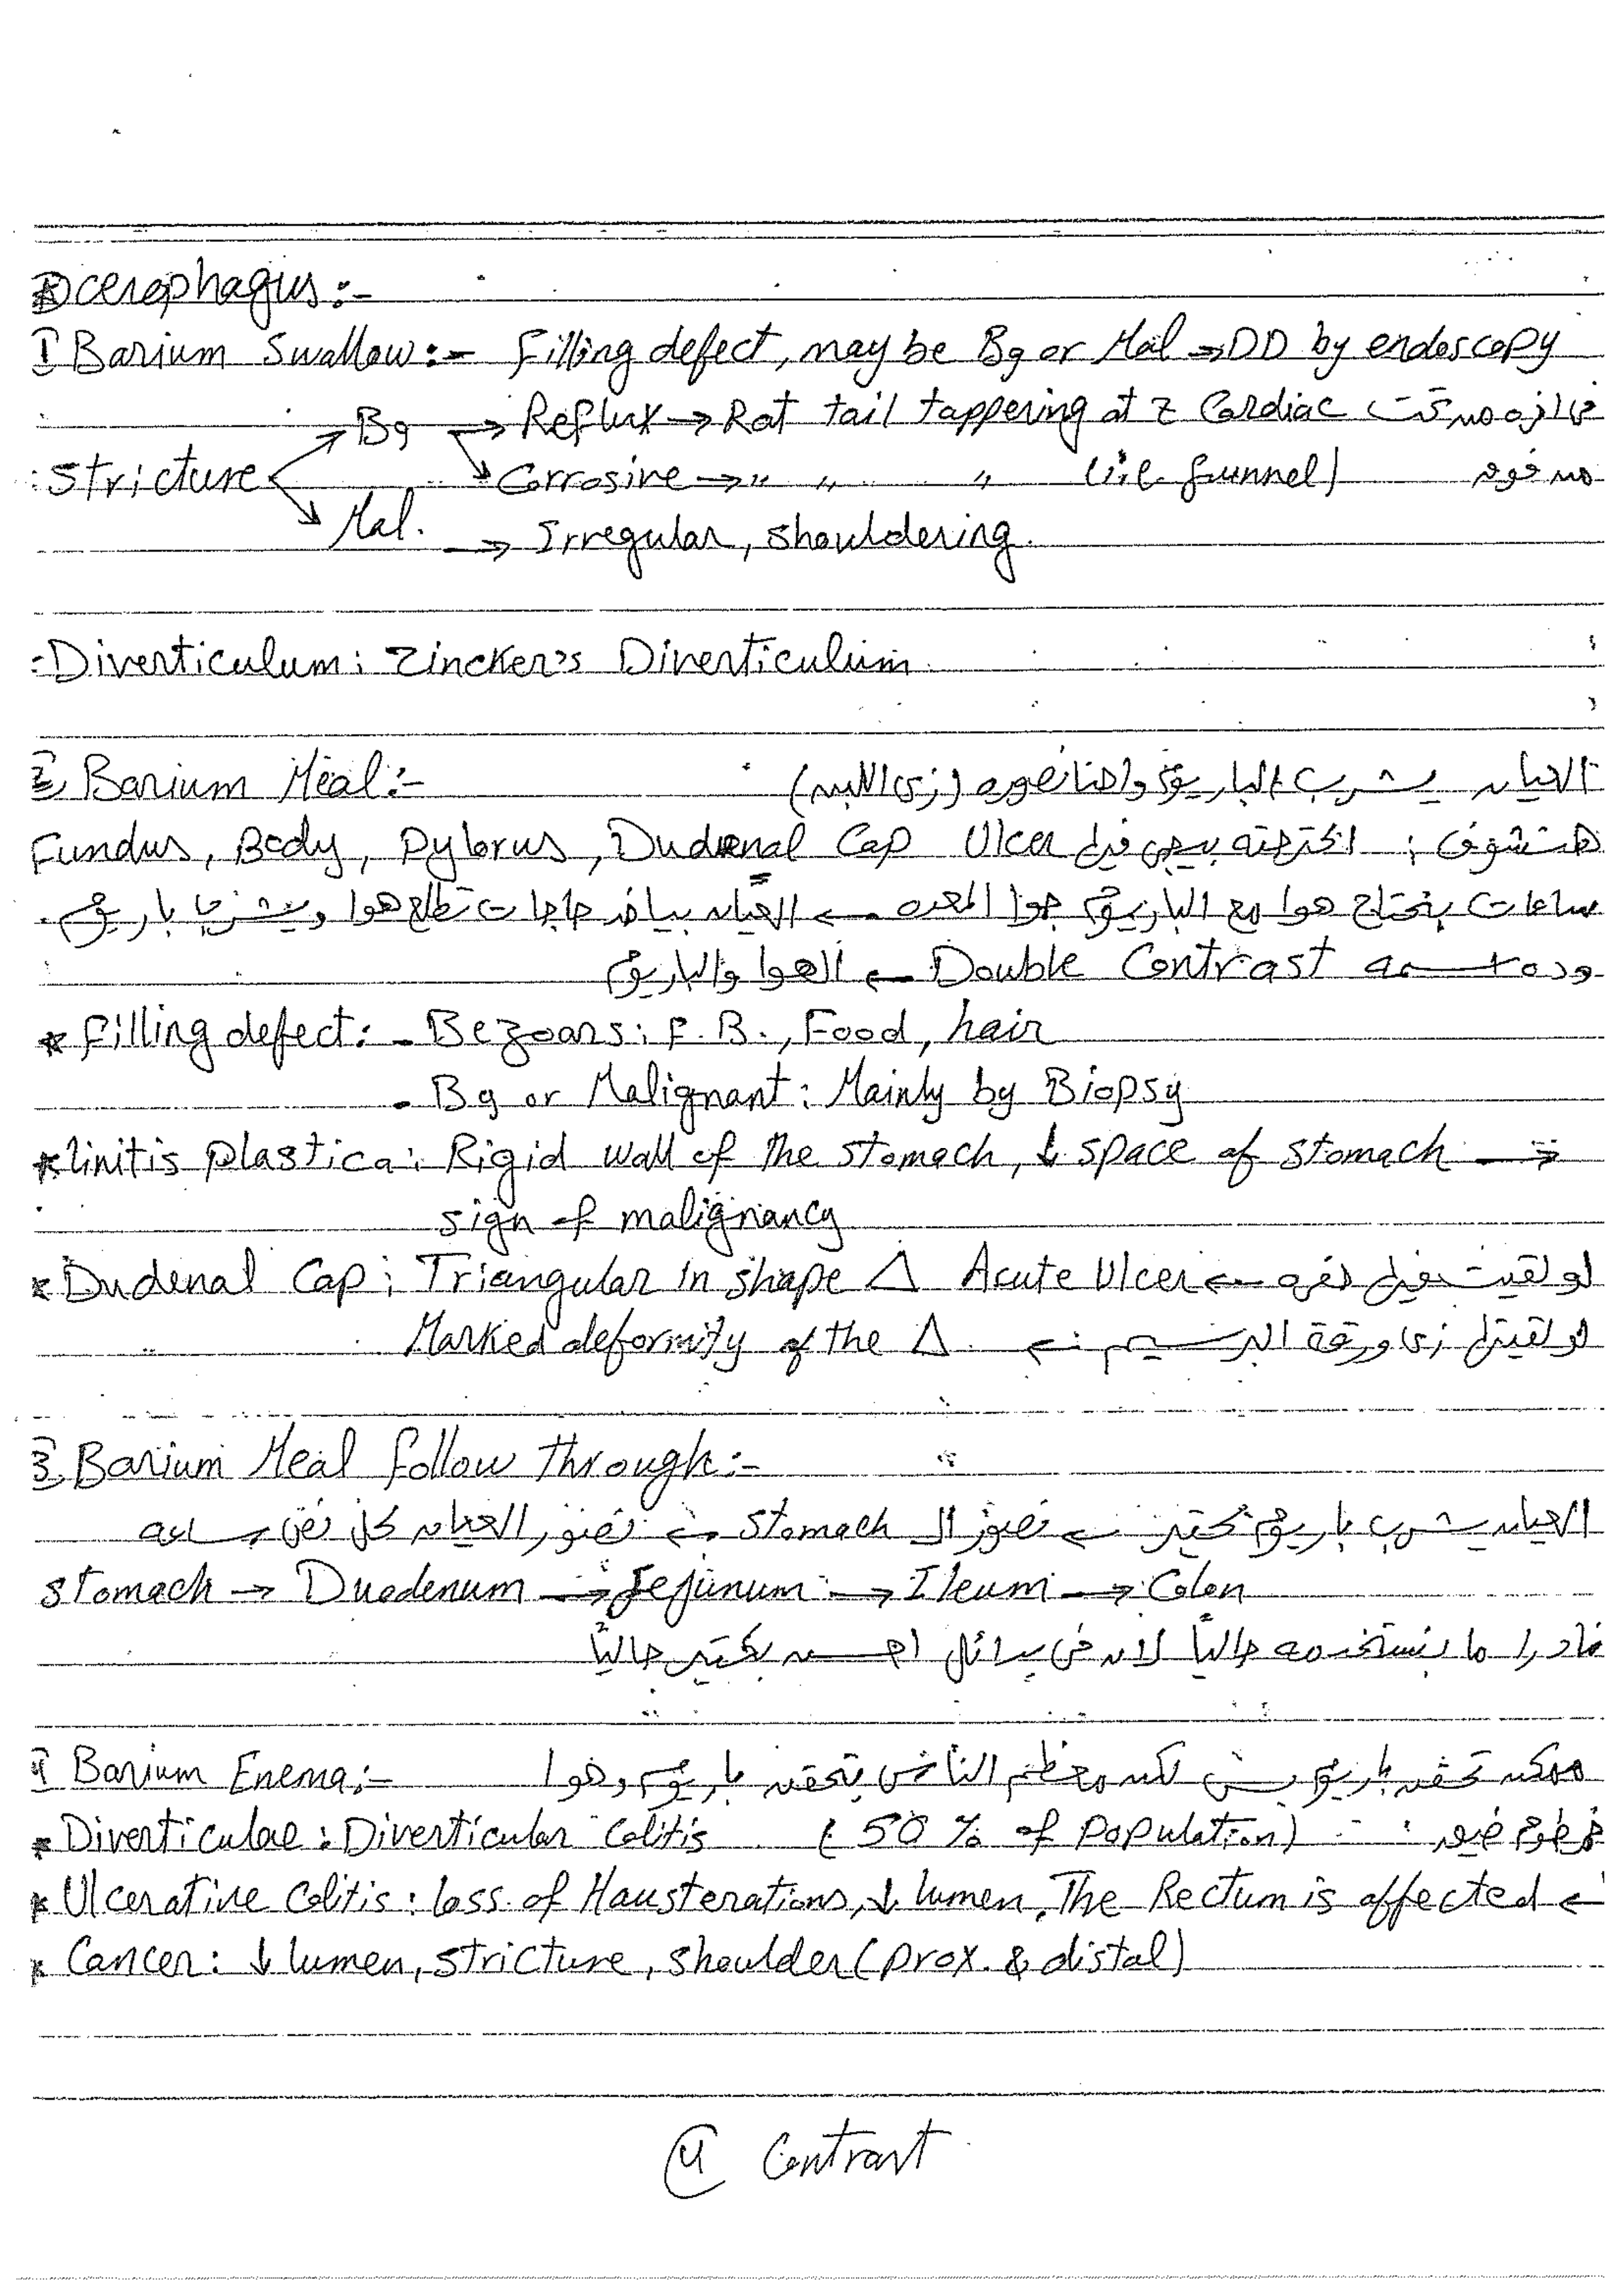 Ocerophagus :-
1 Barium Swallow :- Filling defect, may be Bg or Mal → DD by endoscopy
Bg → Reflux → Rat tail tappering at z Cardiac
:Stricture Corrosive → " " " (i.e. funnel)
Mal. → Irregular, shouldering.
:Diverticulum : Zincker's Diverticulum
2 Barium Meal :- العيان يشرب الباريوم واحنا نصوره (زي اللبن)
Fundus, Body, Pylorus, Dudenal Cap Ulcer هنشوف : اكتر حته بيجي فيها
ساعات بنحتاج هوا مع الباريوم جوا المعده ← العيان بياخد حاجات تطلع هوا ويشرب باريوم.
وده اسمه Double Contrast ← الهوا والباريوم
* Filling defect : - Bezoars : F.B., Food, hair
- Bg or Malignant : Mainly by Biopsy
* linitis plastica : Rigid wall of the stomach, ↓ space of stomach →
sign of malignancy
* Dudenal Cap : Triangular in shape △ Acute Ulcer ← لو لقيت فيها نقره
Marked deformity of the △ ← لو لقيتها زي ورقة البرسيم
3 Barium Meal follow through :-
العيان يشرب باريوم كتير ← نصور ال Stomach ← نصور العيان كل نص ساعه
Stomach → Duodenum → Jejunum → Ileum → Colon
نادرا ما بنستخدمه حالياً لان في بدائل احسن بكتير حالياً
4 Barium Enema :- ممكن نحقن باريوم بس لكن معظم الناس بتحقن باريوم وهوا
* Diverticulae : Diverticular Colitis (50 % of population)
* Ulcerative Colitis : loss of Hausterations, ↓ lumen, The Rectum is affected ←
* Cancer : ↓ lumen, stricture, shoulder (prox. & distal)
4 Contrast